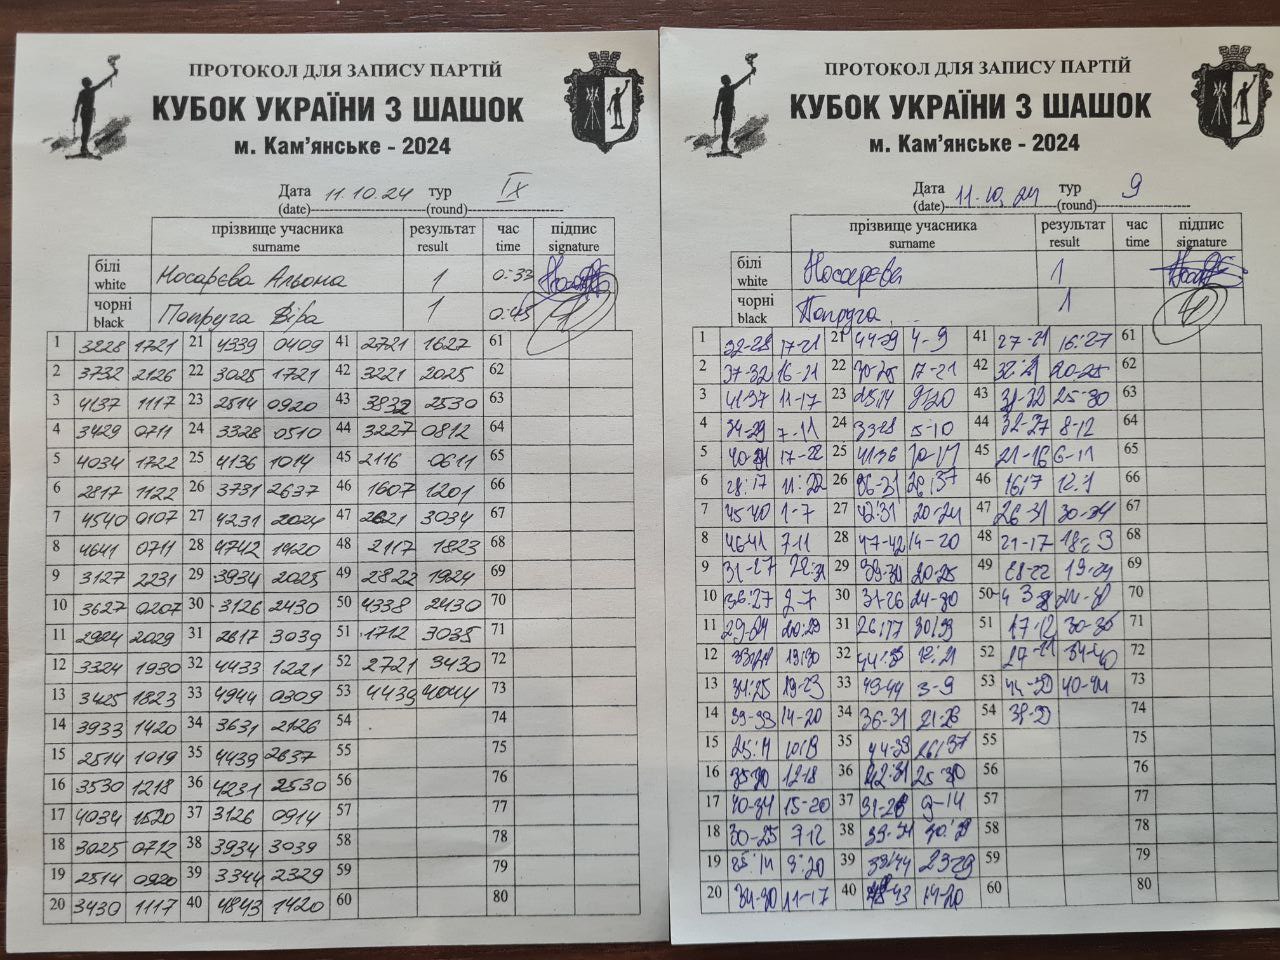 ПРОТОКОЛ ДЛЯ ЗАПИСУ ПАРТІЙ
КУБОК УКРАЇНИ З ШАШОК
м. Кам'янське - 2024
Дата 11.10.24 тур IX
(date) (round)
прізвище учасника результат час підпис
surname result time signature
білі Носарєва Альона 1 0:33
white
чорні Попруга Віра 1 0:45
black
1 3228 1721 21 4339 0409 41 2721 1627 61
2 3732 2126 22 3025 1721 42 3221 2025 62
3 4137 1117 23 2514 0920 43 3832 2530 63
4 3429 0711 24 3328 0510 44 3227 0812 64
5 4034 1722 25 4136 1014 45 2116 0611 65
6 2817 1122 26 3731 2637 46 1607 1201 66
7 4540 0107 27 4231 2024 47 2621 3034 67
8 4641 0711 28 4742 1420 48 2117 1823 68
9 3127 2231 29 3934 2025 49 2822 1924 69
10 3627 0207 30 3126 2430 50 4338 2430 70
11 2924 2029 31 2617 3039 51 1712 3035 71
12 3324 1930 32 4433 1221 52 2721 3430 72
13 3425 1823 33 4944 0309 53 4439 4044 73
14 3933 1420 34 3631 2126 54 74
15 2514 1019 35 4439 2637 55 75
16 3530 1218 36 4231 2530 56 76
17 4034 1520 37 3126 0914 57 77
18 3025 0712 38 3934 3039 58 78
19 2514 0920 39 3344 2329 59 79
20 3430 1117 40 4843 1420 60 80
ПРОТОКОЛ ДЛЯ ЗАПИСУ ПАРТІЙ
КУБОК УКРАЇНИ З ШАШОК
м. Кам'янське - 2024
Дата 11.10.24 тур 9
(date) (round)
прізвище учасника результат час підпис
surname result time signature
білі Носарєва 1
white
чорні Попруга 1
black
1 32-28 17-21 21 44-39 4-9 41 27-21 16:27 61
2 37-32 16-21 22 30-25 17-21 42 32:21 20-25 62
3 41-37 11-17 23 25:14 9:20 43 25-30 63
4 34-29 7-11 24 33-28 5-10 44 32-27 8-12 64
5 17-22 25 41-36 45 21-16 6-11 65
6 28:17 11:22 26 26:37 46 16:7 12:1 66
7 45-40 1-7 27 42:31 20-24 47 26-21 30-34 67
8 46-41 7-11 28 47-42 14-20 48 21-17 68
9 31-27 22:31 29 39-34 20-25 49 28-22 19-24 69
10 36:27 2-7 30 31-26 24-30 50 70
11 29-24 20:29 31 26:17 30:39 51 17:12 30-35 71
12 33:24 19:30 32 12:21 52 34-40 72
13 34:25 18-23 33 49-44 3-9 53 40-44 73
14 39-33 14-20 34 36-31 21-26 54 74
15 25:14 35 44-39 26:37 55 75
16 35-30 12-18 36 42:31 25-30 56 76
17 40-34 15-20 37 31-26 9-14 57 77
18 30-25 7-12 38 39-34 30:39 58 78
19 25:14 9:20 39 23-29 59 79
20 34-30 11-17 40 14-20 60 80